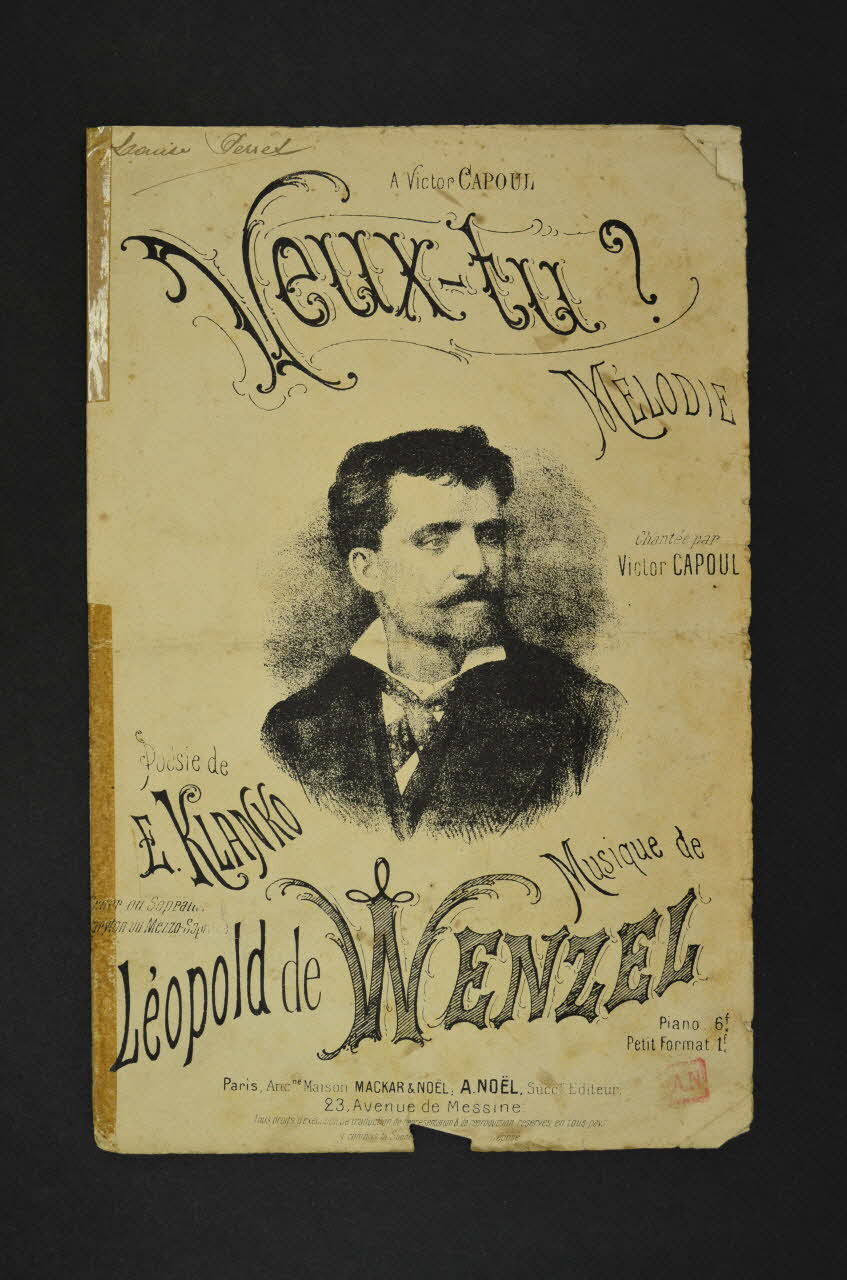 Louise Perret
A Victor CAPOUL
Veux-tu?
MÉLODIE
Chantée par
Victor CAPOUL
Poésie de
E. KLANKO
Musique de
ou Soprano
ou Mezzo-Sop
Léopold de WENZEL
Piano 6f.
Petit Format 1f.
Paris, Ancne Maison MACKAR & NOËL, A. NOËL, Succr Editeur.
23, Avenue de Messine
Tous droits d'exécution de traduction de représentation & de reproduction réservés en tous pays
y compris la
A.N